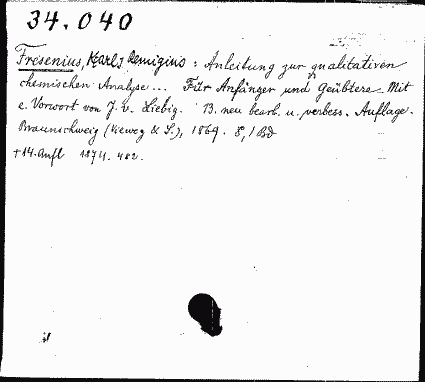 34.040
Fresenius, Karl, Remigius : Anleitung zur qualitativen
chemischen Analyse ... Für Anfänger und Geübtere. Mit
e. Vorwort von J. v. Liebig. 13. neu bearb. u. verbess. Auflage.
Braunschweig (Vieweg & S.), 1869. 8, 1 Bd
+ 14. Aufl 1874. 482.